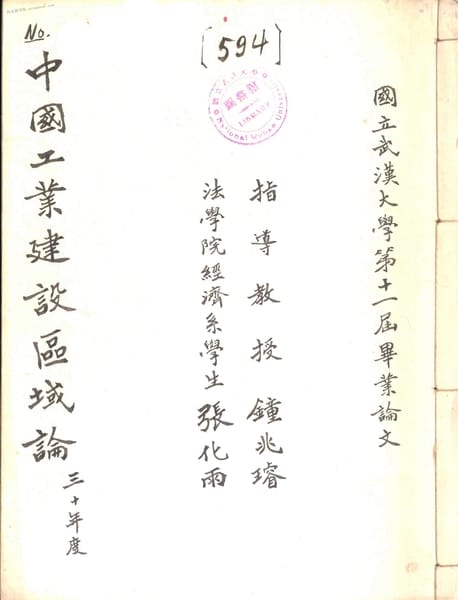 國立武漢大學第十一屆畢業論文
指導教授 鐘兆璿
法學院經濟系學生 張化雨
中國工業建設區域論
三十年度
No.
[594]
圖書館
LIBRARY
National Wuhan University